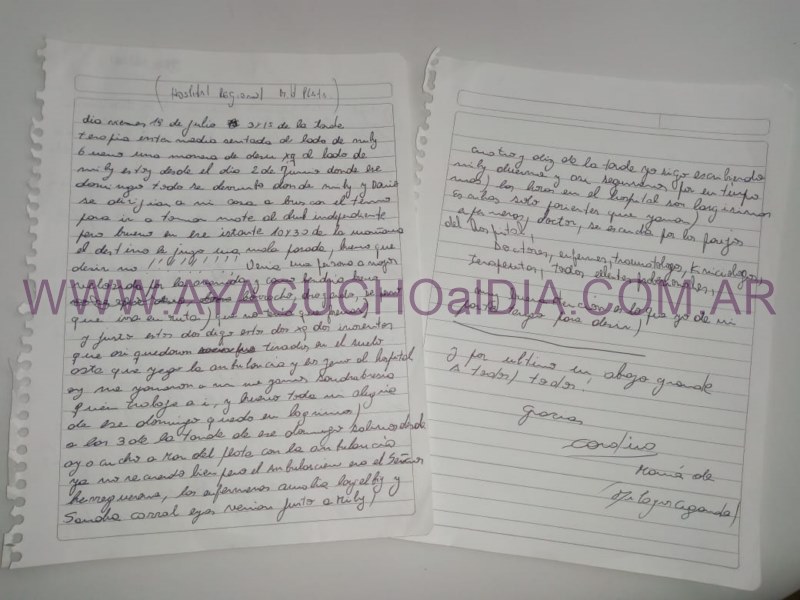 ( Hospital Regional M. d Plata )
dia viernes 19 de julio 2013 de la tarde
terapia entermedia sentada al lado de mily
bueno una manera de decir xq al lado de
mily estoy desde el dia 2 de Junio donde ese
domingo todo se derrumbo donde mily y Dario
se dirijian a mi casa a buscar el termo
para ir a tomar mate al club independiente
pero bueno en ese istante 10 y 30 de la mañana
el destino le jugo una mala pasada, bueno que
decir no !!!!!!!! Venia una persona a mayor
que iva en ruta,
y justo estos dos digo estos dos xq dos inosentes
que asi quedaron tirados en el suelo
asta que yego la ambulancia y los yevo al hospital
ay me yamaron a mi me yamo Sandra
quien trabaja a i, y bueno toda mi alegria
de ese domingo quedo en lagrimas,
a las 3 de la tarde de ese domingo salimos desde
ayacucho a Mar del plata con la ambulancia
ya no recuerdo bien pero el ambulanciero era el Señor
berreguerena, los enfermeros amalia loyelby y
Sandra corral eyas venian junto a Mily,
cuatro y dies de la tarde yo sigo escribiendo
mily duerme y asi seguimos por un tiempo
mas, las horas en el hospital son larguisimas
Escuchas solo parientes que yaman,
enfermeros, doctor, se escucha por los
del Hospital,
Doctores, enfermeros, traumatologos, Kinesiologos,
Terapeutas, todos
y por ultimo un abrazo grande
A todos, todos!
Gracias
Carolina
Mamá de
Milagros
WWW.AYACUCHOalDIA.COM.AR